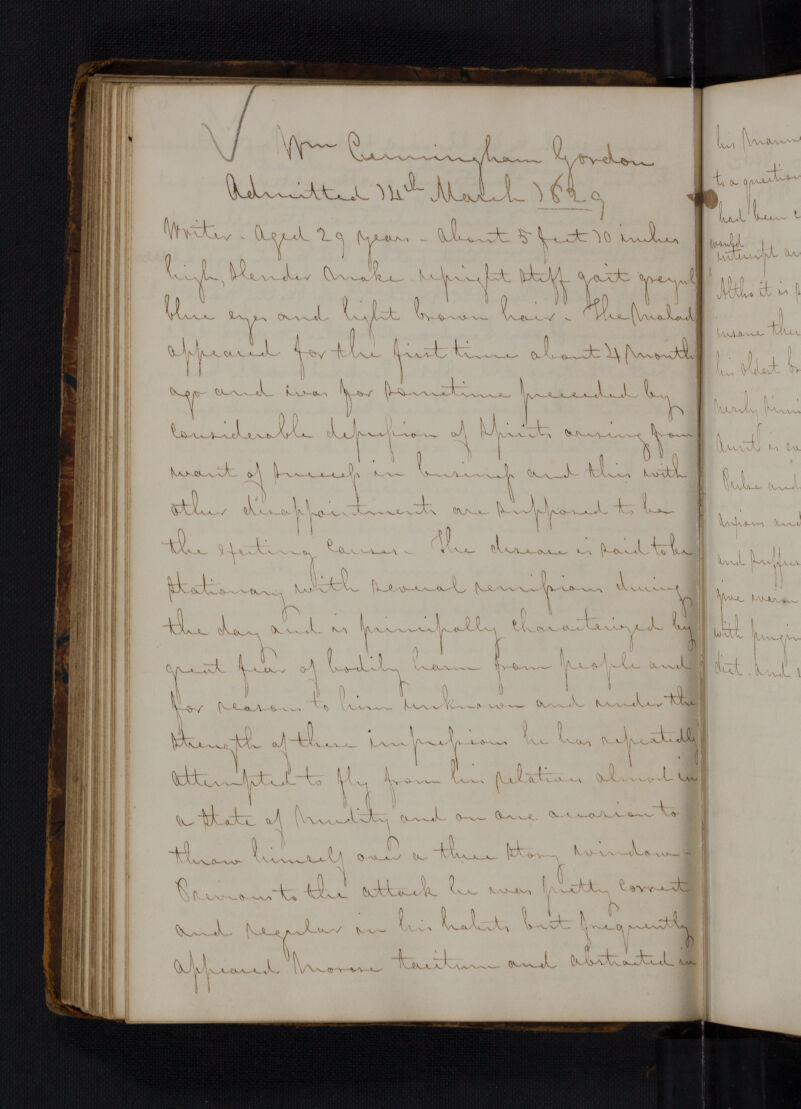 Wm Cunningham Gordon
Admitted 14th March 1829
Writer - Aged 29 years - about 5 feet 10 inches
high, slender make upright stiff gait greyish
blue eyes and light brown hair - The Malady
appeared for the first time about 4 Months
ago and was for sometime preceeded by
considerable depression of Spirits arising from
want of success in business and this with
other disappointments are supposed to be
the exciting causes - The disease is said to be
stationary with several remissions during
the day and is principally characterized by
great fear of bodily harm from people and
for reasons to him unknown and under the
strength of these impressions he has repeatedly
attempted to fly from his relations almost in
a state of nudity and on one occasion to
throw himself over a three story window -
Previous to the attack he was pretty correct
and regular in his habits but frequently
appeared Morose taciturn and abstracted in
his Manner
to a question
had been
would
interrupt
Altho it is
insane
his oldest
nearly
Aunt is
Pulse and
and
with
diet - and